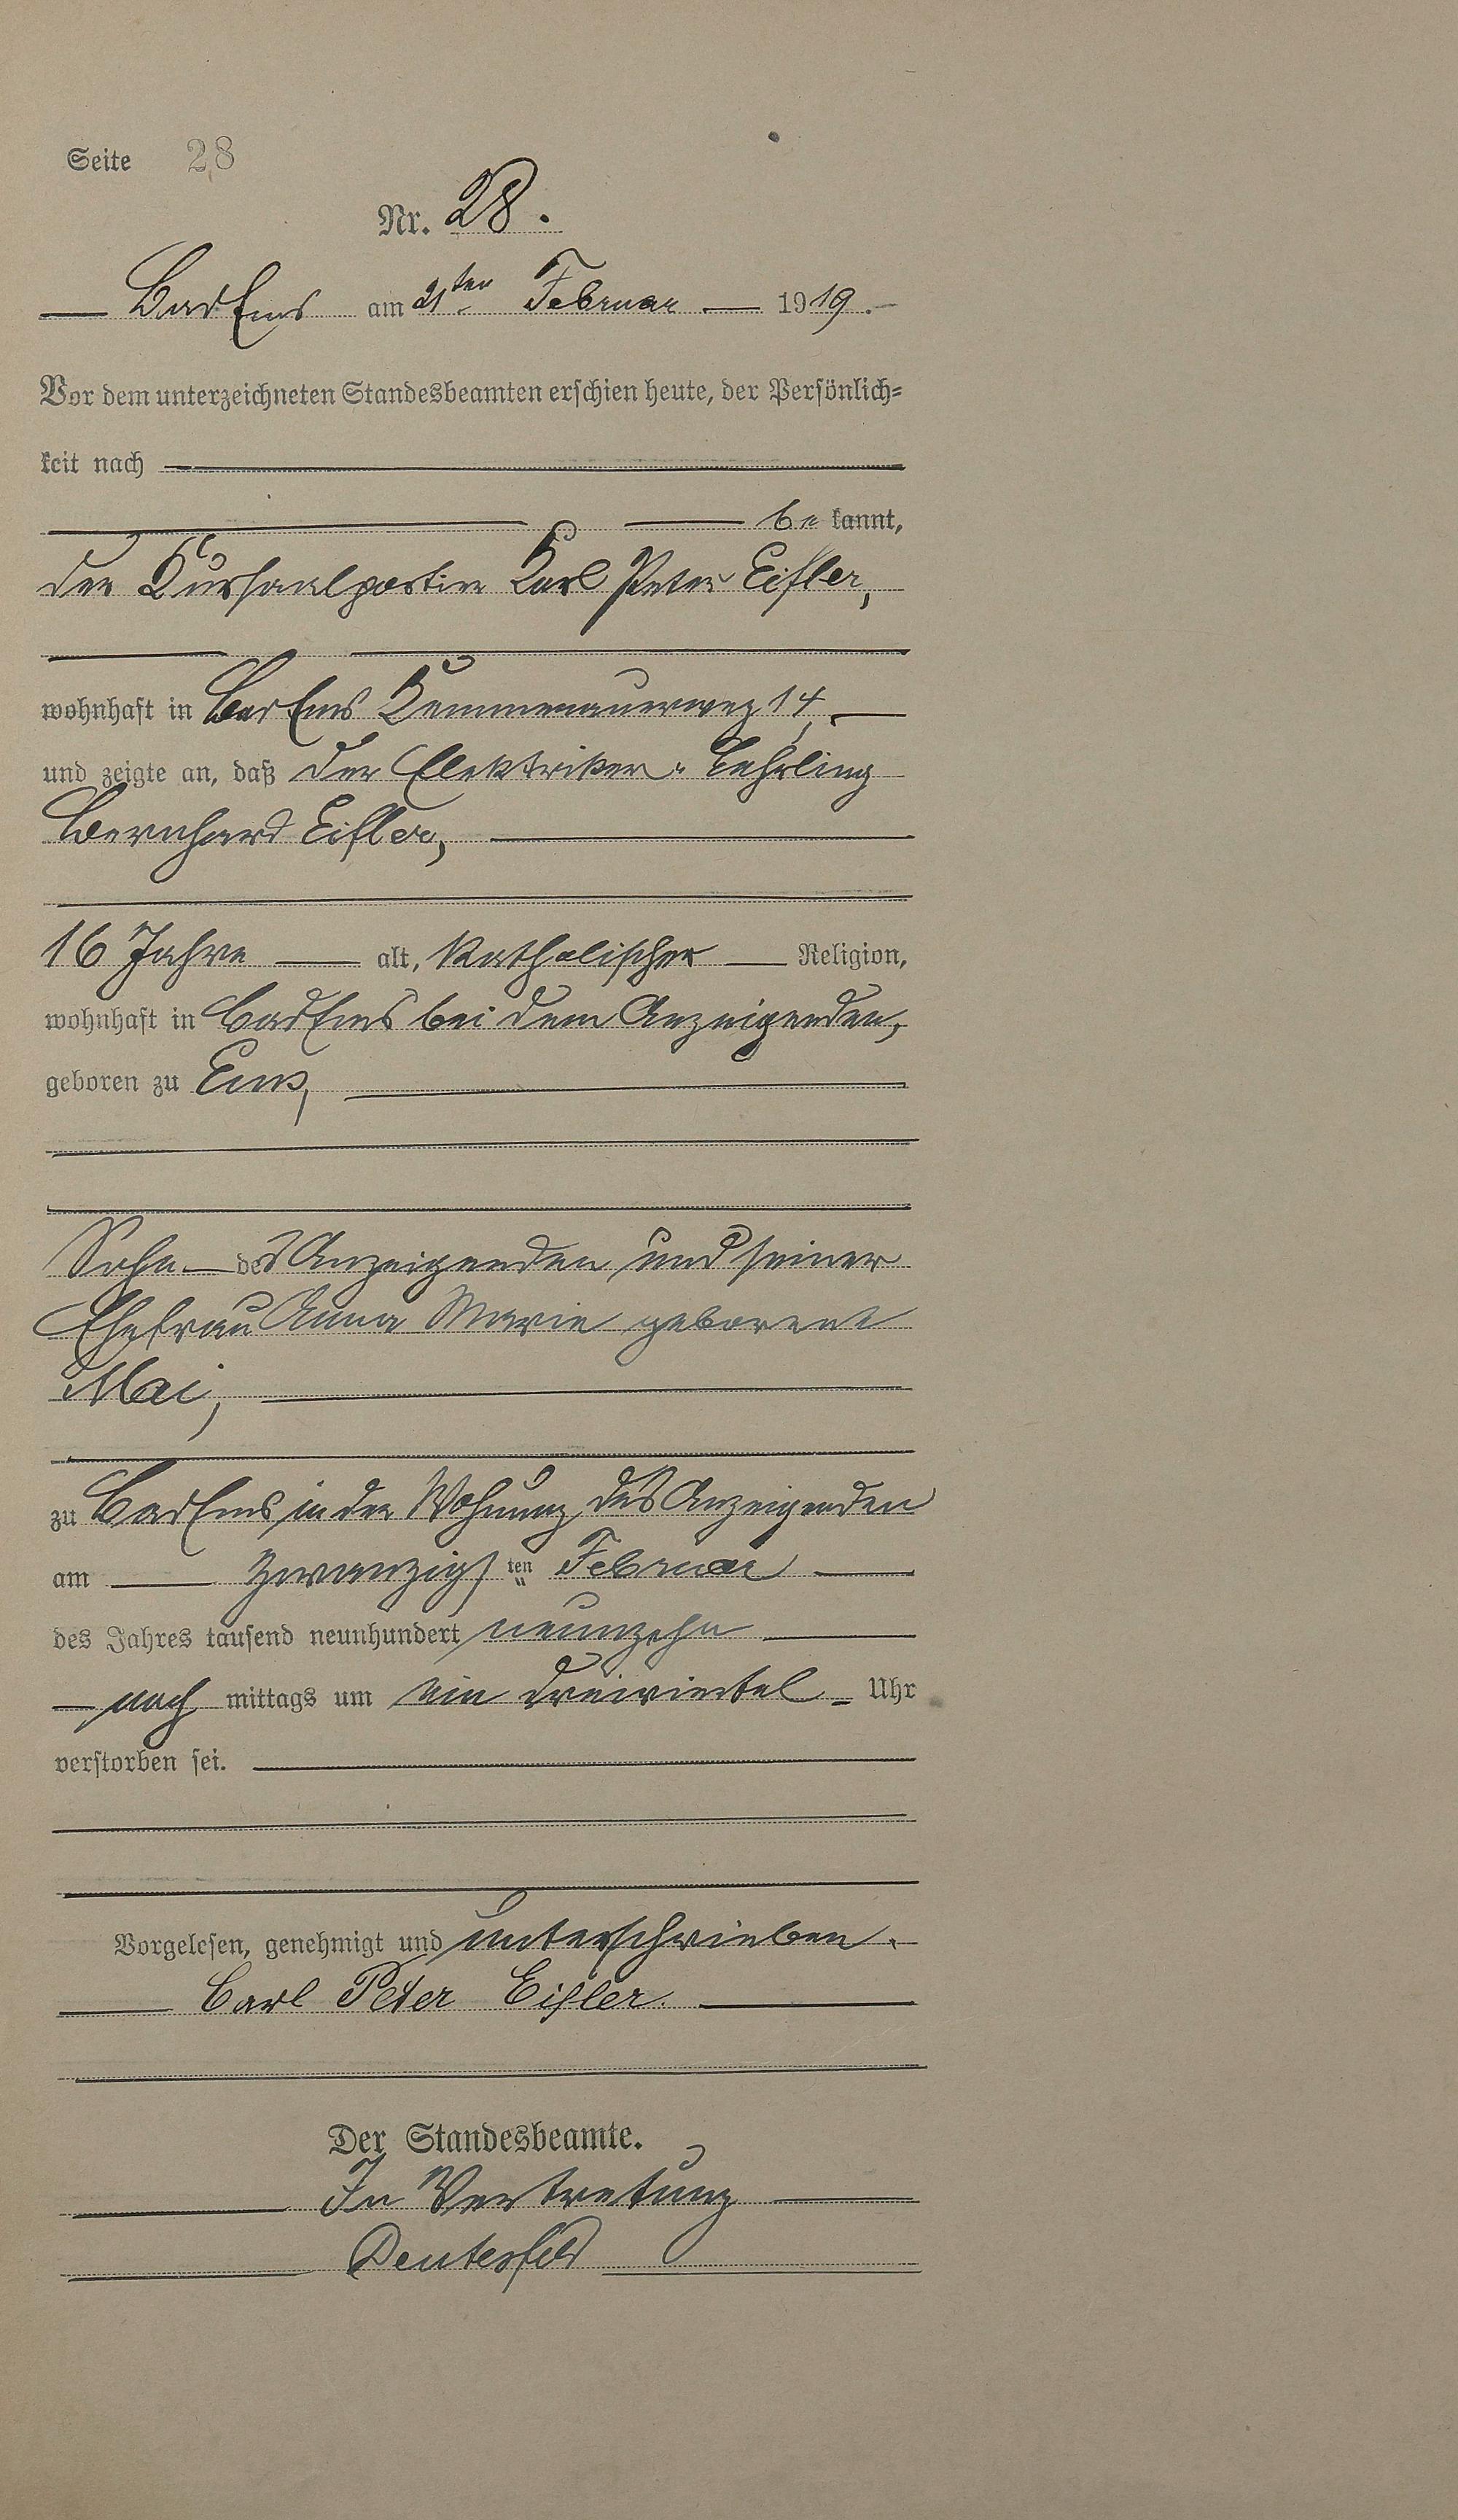 Seite 28
Nr. 28.
Bad Ems am 21ten Februar 1919.
Vor dem unterzeichneten Standesbeamten erschien heute, der Persönlich-
keit nach
be kannt,
der Kursaalportier Karl Peter Eifler,
wohnhaft in Bad Ems Kemmenauerweg 14,
und zeigte an, daß der Elektriker-Lehrling
Bernhard Eifler,
16 Jahre alt, katholischer Religion,
wohnhaft in Bad Ems bei dem Anzeigenden,
geboren zu Ems,
Sohn des Anzeigenden und seiner
Ehefrau Anna Marie geborene
Mai,
zu Bad Ems, in der Wohnung des Anzeigenden
am zwanzigsten Februar
des Jahres tausend neunhundert neunzehn
nach mittags um ein dreiviertel Uhr
verstorben sei.
Vorgelesen, genehmigt und unterschrieben.
Carl Peter Eifler.
Der Standesbeamte.
In Vertretung